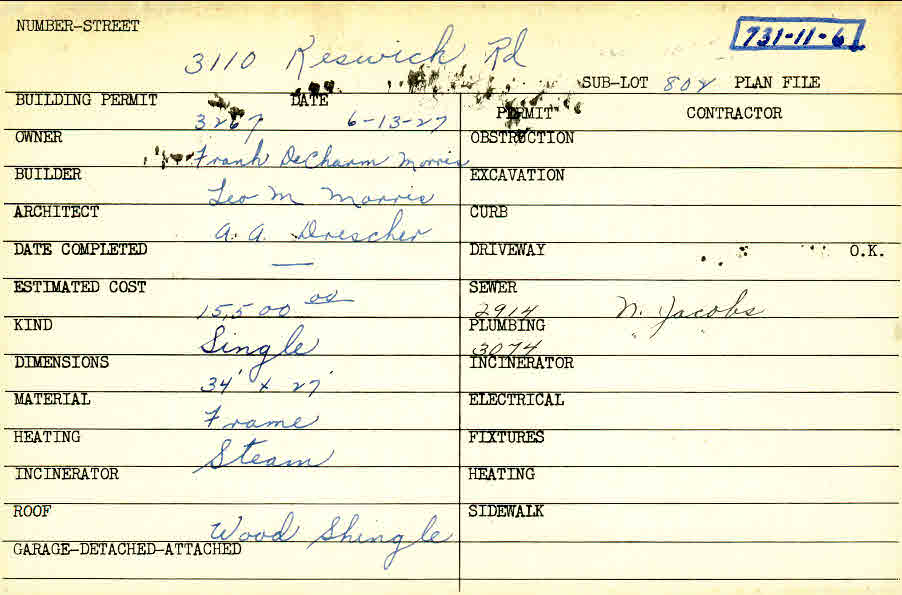 NUMBER-STREET
3110 Keswick Rd
731-11-61
SUB-LOT 802 PLAN FILE
BUILDING PERMIT DATE
3267 6-13-27
OWNER
Frank DeCharm Morris
BUILDER
Leo M Morris
ARCHITECT
A. A. Drescher
DATE COMPLETED
—
ESTIMATED COST
15,500 00
KIND
Single
DIMENSIONS
34' x 27'
MATERIAL
Frame
HEATING
Steam
INCINERATOR
ROOF
Wood Shingle
GARAGE-DETACHED-ATTACHED
PERMIT CONTRACTOR
OBSTRUCTION
EXCAVATION
CURB
DRIVEWAY O.K.
SEWER
2914 N. Jacobs
PLUMBING
3074 " "
INCINERATOR
ELECTRICAL
FIXTURES
HEATING
SIDEWALK